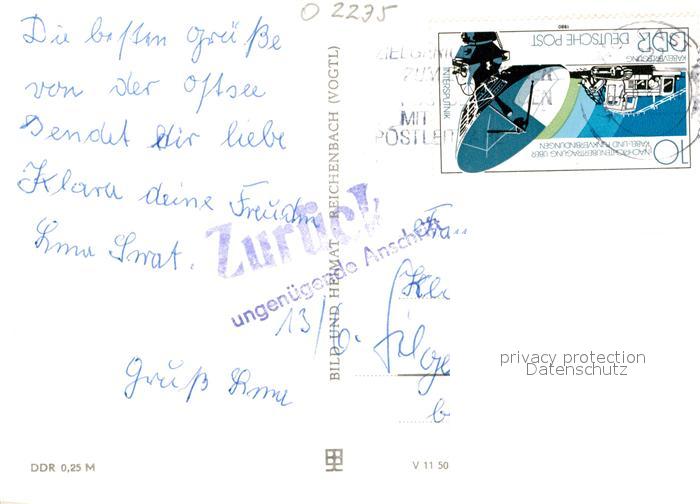 O 2235
Die besten Grüße
von der Ostsee
Sendet dir liebe
Klara deine Freundin
Gruß
Zurück
ungenügende Anschrift
13/6.
Frau
Kl
ge
b
BILD UND HEIMAT REICHENBACH (VOGTL)
MIT
POSTLEI
1980
DDR
DEUTSCHE POST
KABELVERLEGUNG
INTERSPUTNIK
10
NACHRICHTENÜBERTRAGUNG ÜBER
KABEL- UND FUNKVERBINDUNGEN
privacy protection
Datenschutz
DDR 0,25 M
V 11 50